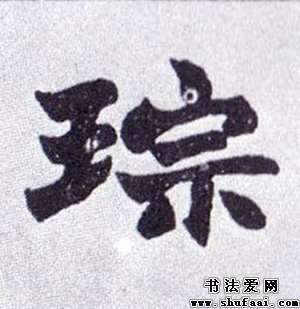 琮
书法爱网
www.shufaai.com